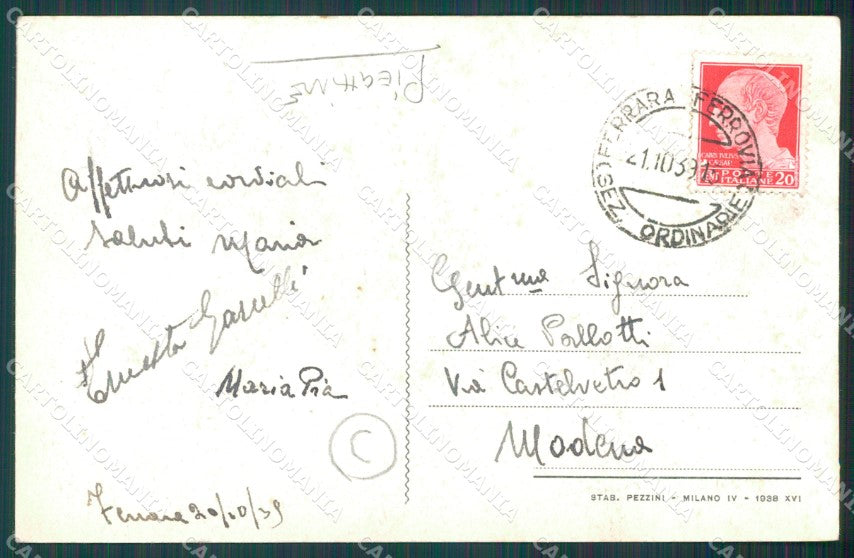 Affettuosi cordiali
saluti Maria
Ernesta
Maria Pia
Ferrara 20/10/39
C
FERRARA FERROVIA
21.10.39
(SEZ. ORDINARIE)
POSTE
ITALIANE 20
Gent.ma Signora
Alice Pallotti
Via Castelvetro 1
Modena
STAB. PEZZINI - MILANO IV - 1938 XVI
CARTOLINOMANIA